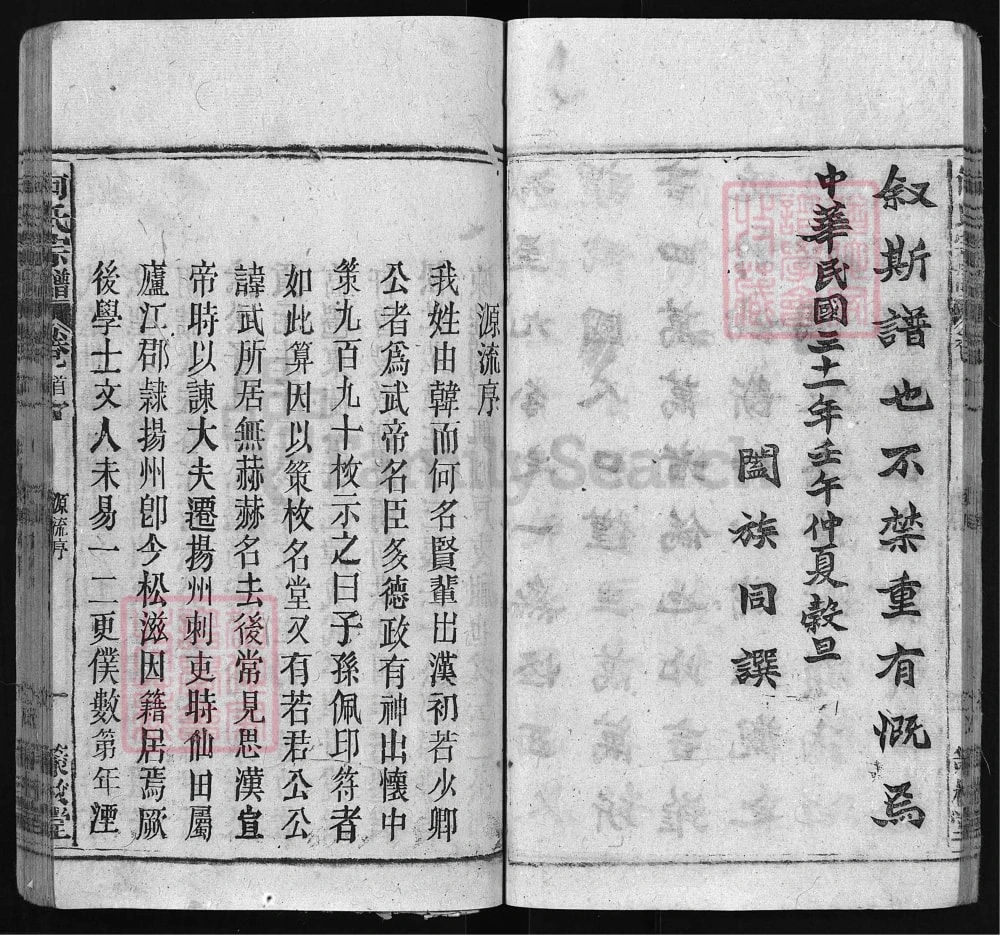 叙斯譜也不禁重有慨焉
中華民國三十一年壬午仲夏穀旦
闔族同譔
源流序
我姓由韓而何名賢輩出漢初若少卿
公者爲武帝名臣多德政有神出懷中
策九百九十枚示之曰子孫佩印符者
如此算因以策枚名堂又有若君公公
諱武所居無赫赫名去後常見思漢宣
帝時以諫大夫遷揚州刺吏時仙田屬
廬江郡隷揚州卽今松滋因籍居焉厥
後學士文人未易一二更僕數第年湮
何氏宗譜
卷首
源流序
一
策枚堂
FamilySearch